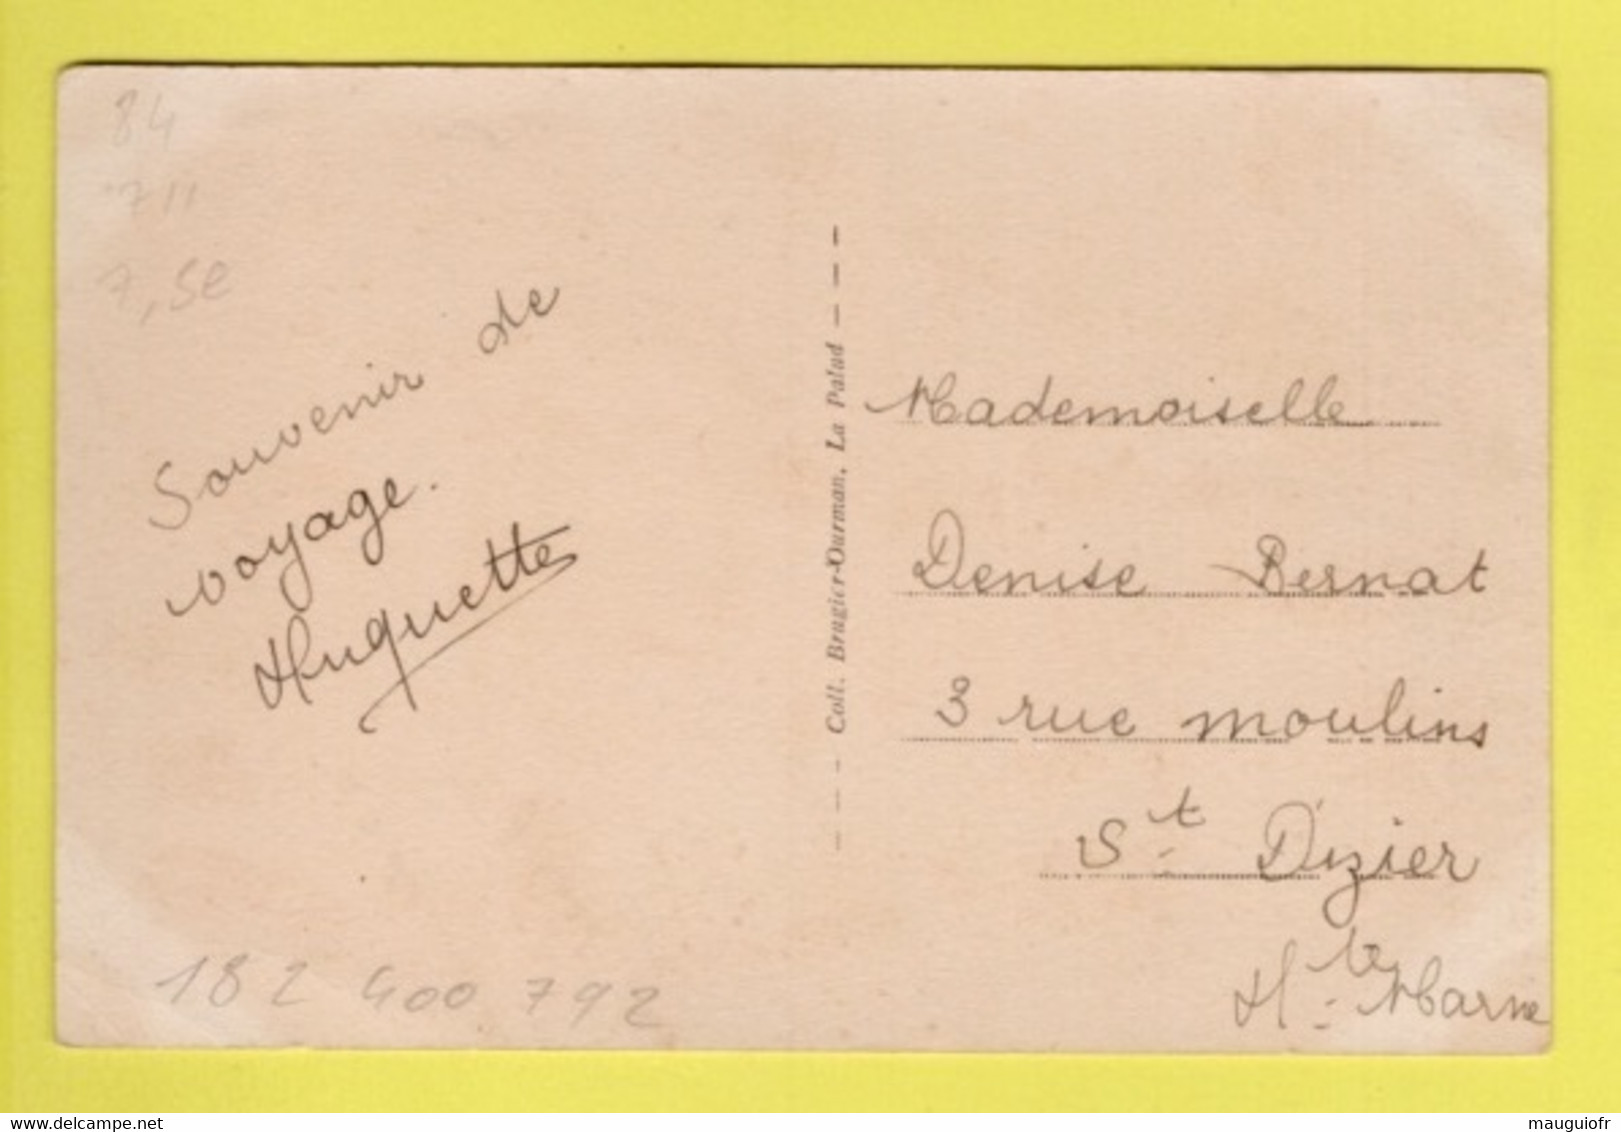 84
711
7,50
Souvenir de
voyage.
Huguette
182 400 792
Coll. Brugier-Ourman, La Palud
Mademoiselle
Denise Bernat
3 rue moulins
St Dizier
Hte Marne
delcampe.net
mauguiofr